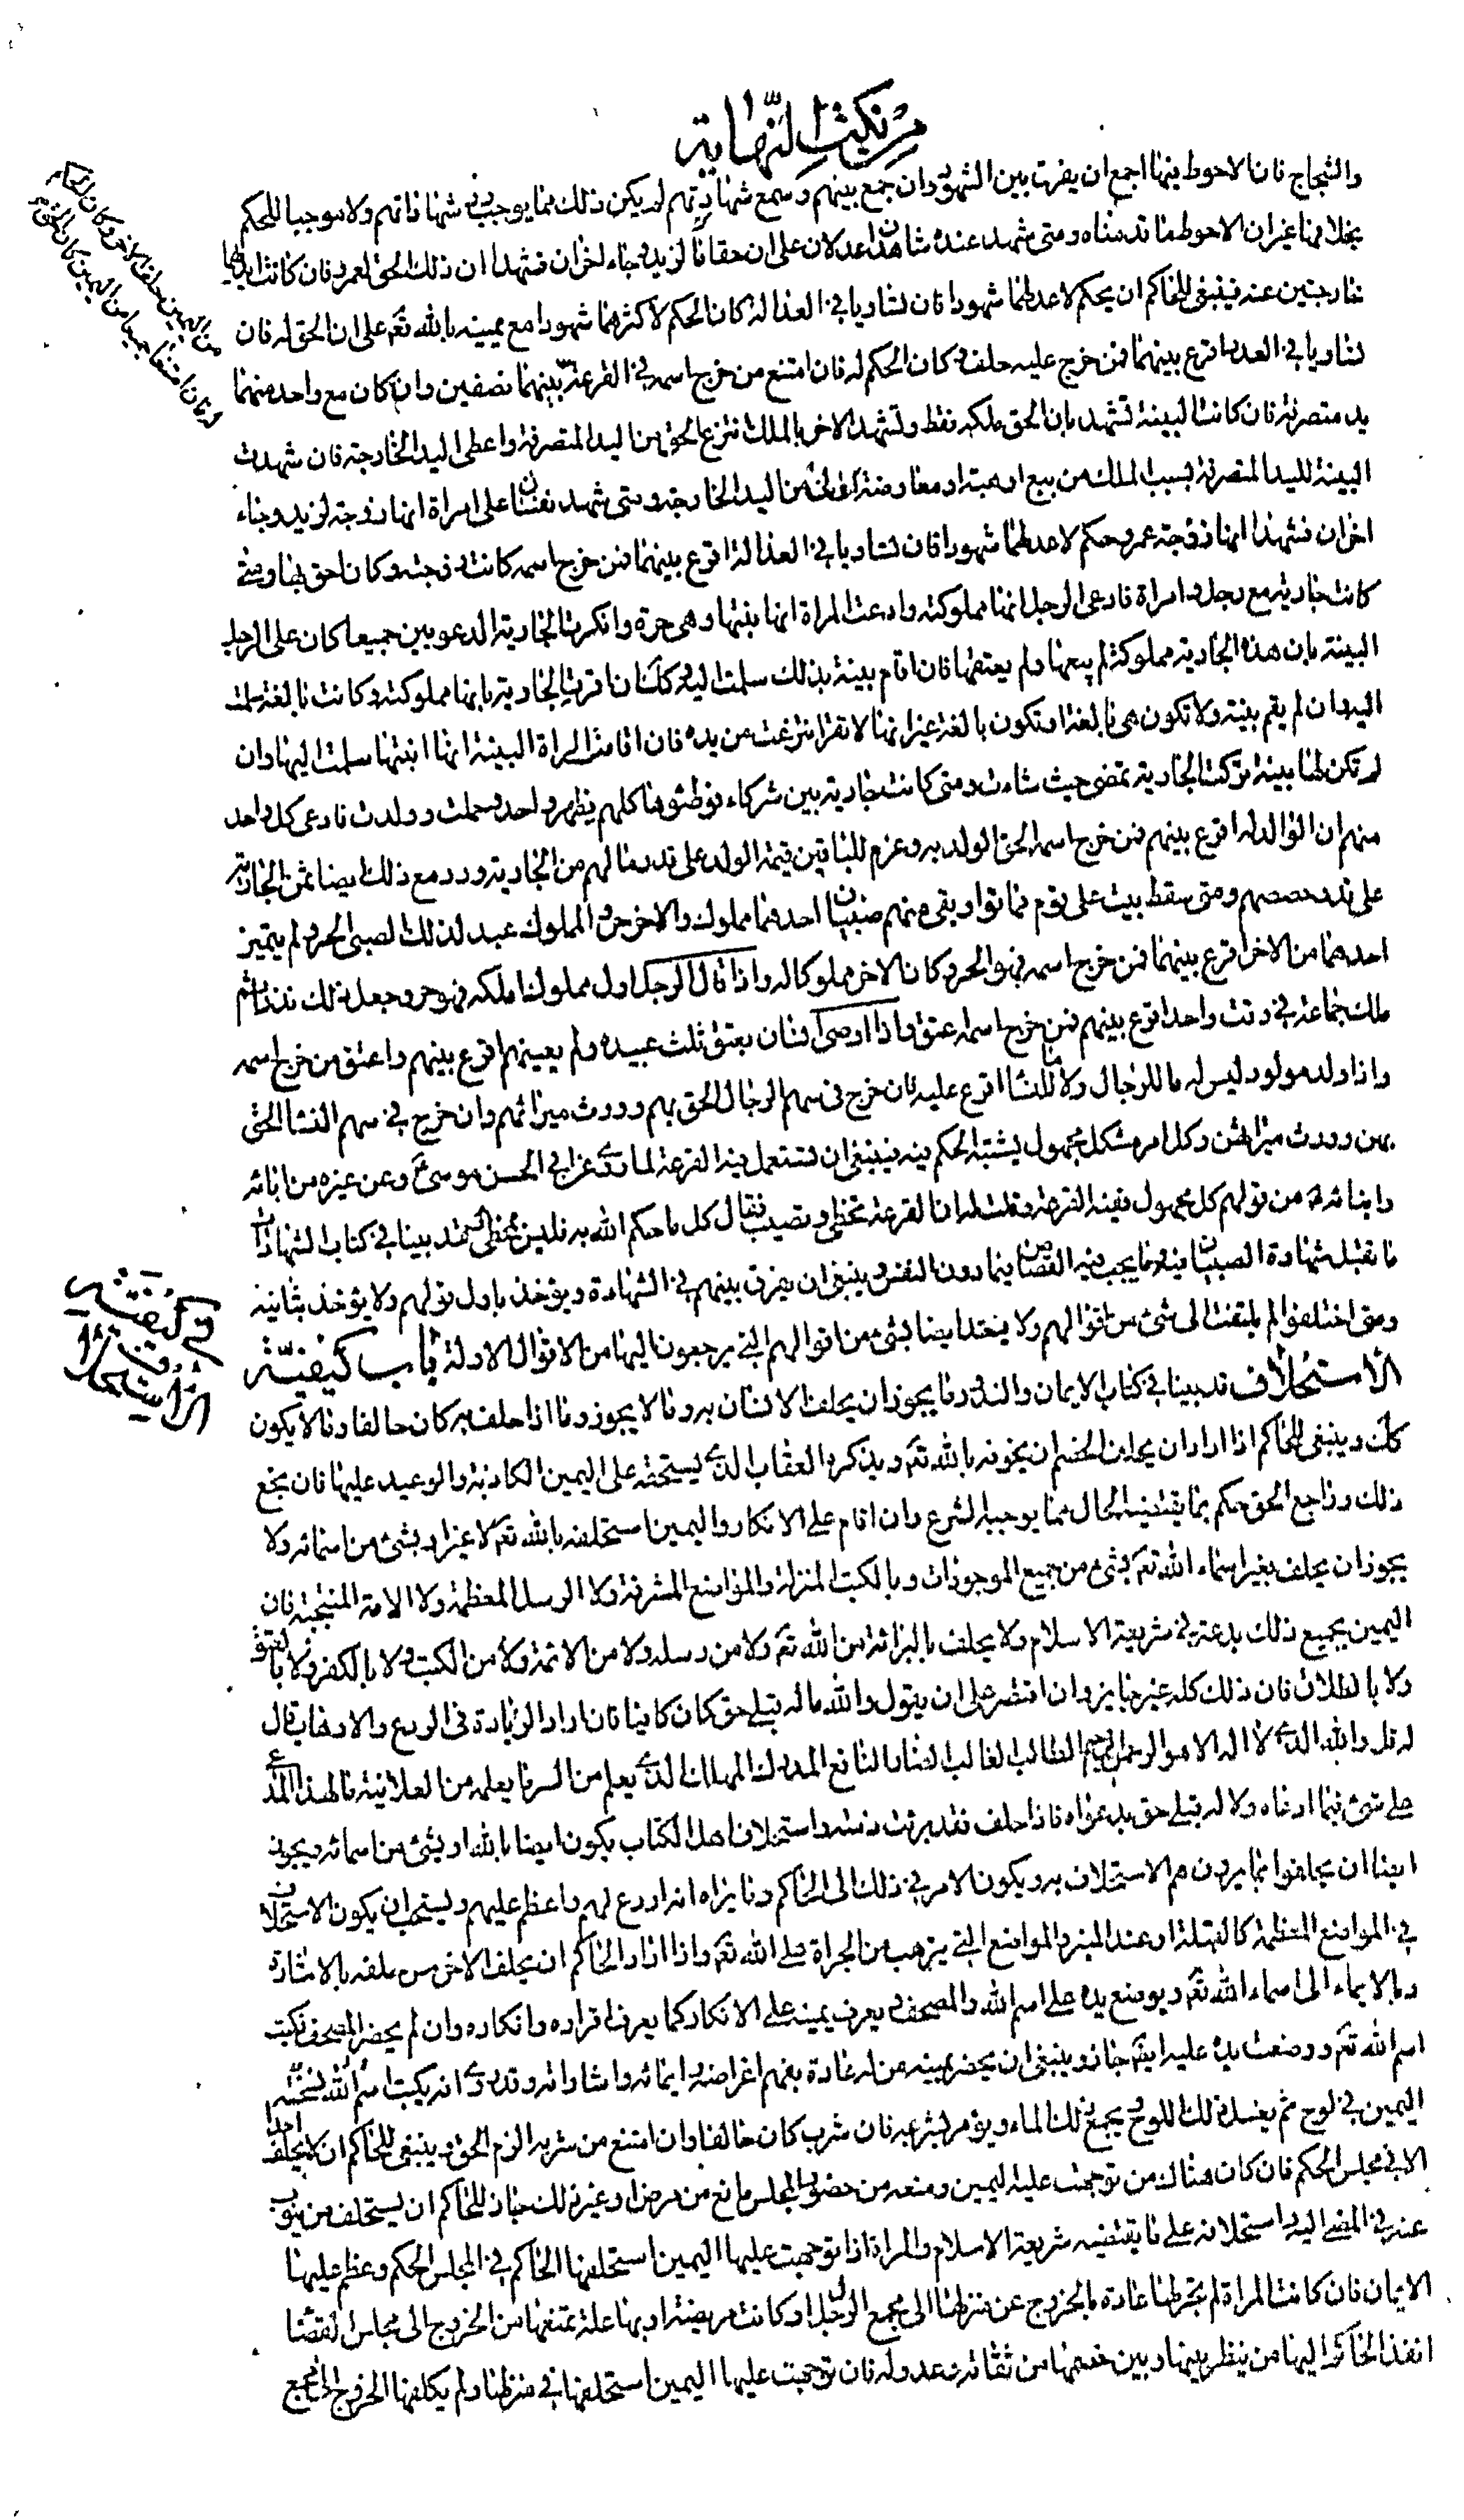 من نكت النهاية
والشجاج فان الاحوط فيها اجمع ان يفرق بين الشهود وان جمع بينهم وسمع شهادتهم لم يكن ذلك مما يوجب رد شهاداتهم ولا موجبا للحكم
بخلافها غير ان الاحوط ما قدمناه ومتى شهد عنده شاهدان عدلان على ان حقا ما لزيد وجاء اخران فشهدا ان ذلك الحق لعمرو فان كانت ايديهما
خارجتين عنه فينبغي للحاكم ان يحكم لاعدلهما شهودا فان تساويا في العدالة كان الحكم لاكثرهما شهودا مع يمينه بالله تعم على ان الحق له فان
تساويا في العدد اقرع بينهما فمن خرج عليه حلف وكان الحكم له فان امتنع من خرج اسمه في القرعة بينهما نصفين وان كان مع واحد منهما
يد متصرفة فان كانت البينة تشهد بان الحق ملكه فقط وتشهد الاخر بالملك انتزع الحق من اليد المتصرفة واعطى اليد الخارجة فان شهدت
البينة لليد المتصرفة بسبب الملك من بيع او هبة او معاوضة كانت اولى من اليد الخارجة ومتى شهد نفسان على امراة انها زوجة لزيد وجاء
اخران فشهدا انها زوجة عمرو حكم لاعدلهما شهودا فان تساويا في العدالة اقرع بينهما فمن خرج اسمه كانت زوجته وكان احق بها ومتى
كانت جارية مع رجل وامراة فادعى الرجل انها مملوكته وادعت المراة انها بنتها وهى حرة وانكرت الجارية الدعويين جميعا كان على الرجل
البينة بان هذه الجارية مملوكة لم يبعها ولم يعتقها فان اقام بينة بذلك سلمت اليه وكك ان اقرت الجارية بانها مملوكته وكانت بالغة سلمت
اليه وان لم يقم بينة ولا تكون هى بالغة او تكون بالغة غير انها لا تقر انتزعت من يده فان اقامت المراة البينة انها ابنتها سلمت اليها وان
لم تكن لها بينة تركت الجارية تمضي حيث شاءت ومتى كانت جارية بين شركاء فوطئوها كلهم في طهر واحد وحملت وولدت فادعى كل واحد
منهم ان الولد له اقرع بينهم فمن خرج اسمه الحق الولد به وغرم للباقين قيمة الولد على قدر مالهم من الجارية ورد مع ذلك ايضا ثمن الجارية
على قدر حصصهم ومتى سقط بيت على قوم فماتوا وبقى منهم صبيان احدهما مملوك والاخر حر والمملوك عبد لذلك الصبي الحر ولم يتميز
احدهما من الاخر اقرع بينهما فمن خرج اسمه فهو الحر وكان الاخر مملوكا له واذا قال الرجل اول مملوك املكه فهو حر وجعل ذلك نذرا ثم
ملك جماعة في وقت واحد اقرع بينهم فمن خرج اسمه عتق واذا اوصى انسان بعتق ثلث عبيده ولم يعينهم اقرع بينهم واعتق من خرج اسمه
واذا ولد مولود ليس له ما للرجال ولا ما للنسا اقرع عليه فان خرج في سهم الرجال الحق بهم وورث ميراثهم وان خرج في سهم النسا الحق
بهن وورث ميراثهن وكل امر مشكل مجهول يشتبه الحكم فيه فينبغي ان تستعمل فيه القرعة لما روى عن ابي الحسن موسى ع وعن غيره من ابائه
وابنائه من قولهم كل مجهول ففيه القرعة وقلت له ان القرعة تخطى وتصيب فقال كل ما حكم الله به فليس بمخطى قد بينا في كتاب الشهادات
ما تقبل شهادة الصبيان فيه وما يجب فيه القصاص فيما دون النفس وينبغي ان يفرق بينهم في الشهادة ويؤخذ باول قولهم ولا يؤخذ بثانيه
ومتى اختلفوا لم يلتفت الى شئ من اقوالهم ولا يعتد ايضا بشئ من اقوالهم التي يرجعون اليها من الاقوال الاولة باب كيفية
الاستحلاف قد بينا في كتاب الايمان والنذور ما يجوز ان يحلف الانسان به وما لا يجوز وما اذا حلف به كان حالفا وما لا يكون
كك وينبغي للحاكم اذا اراد ان يحلف الخصم ان يخوفه بالله تعم ويذكره العقاب الذي يستحقه على اليمين الكاذبة والوعيد عليها فان نجع
ذلك وراجع الحق حكم بما يقتضيه الحال مما يوجبه الشرع وان اقام على الانكار واليمين استحلفه بالله تعم لا غير او بشئ من اسمائه ولا
يجوز ان يحلف بغير اسماء الله تعم بشئ من جميع الموجودات وبالكتب المنزلة والمواضع المشرفة ولا الرسل المعظمة ولا الائمة المنتجبة فان
اليمين بجميع ذلك بدعة في شريعة الاسلام ولا يحلف بالبرائة من الله تعم ولا من رسله ولا من الائمة ولا من الكتب ولا بالكفر ولا بالعتق
ولا بالطلاق فان ذلك كله غير جايز وان اقتصر على ان يقول والله ماله قبلي حق كان كافيا فان اراد الزيادة في الردع والارهاب قال
له قل والله الذي لا اله الا هو الرحمن الرحيم الطالب الغالب الضار النافع المدرك المهلك الذي يعلم من السر ما يعلمه من العلانية ما لهذا المدعي
علي شئ مما ادعاه ولا له قبلي حق بدعواه فاذا حلف فقد برئت ذمته واستحلاف اهل الكتاب يكون ايضا بالله او بشئ من اسمائه ويجوز
ايضا ان يحلفوا بما يرون هم الاستحلاف به ويكون الامر في ذلك الى الحاكم وما يراه انه اردع لهم واعظم عليهم ويستحب ان يكون الاستحلاف
في المواضع المعظمة كالقبلة او عند المنبر والمواضع التي يرهب من الجراة على الله تعم واذا اراد الحاكم ان يحلف الاخرس حلفه بالاشارة
وبالايماء الى اسماء الله تعم ويوضع يده على اسم الله والمصحف يعرف يمينه على الانكار كما يعرف اقراره وانكاره وان لم يحضر المصحف فكتب
اسم الله تعم ووضعت يده عليه ايضا جاز وينبغي ان يحضر يمينه من له عادة بفهم اغراضه وايمائه واشاراته وقد روى انه يكتب اسم الله نسخة
اليمين في لوح ثم يغسل ذلك اللوح ويجمع ذلك الماء ويؤمر بشربه فان شرب كان حالفا وان امتنع من شربه الزم الحق وينبغي للحاكم ان لا يحلف احدا
الا في مجلس الحكم فان كان هناك من توجهت عليه اليمين ومنعه من حضور المجلس مانع من مرض او غير ذلك جاز للحاكم ان يستحلف من ينوب
عنه في المضي اليه واستحلافه على ما يقتضيه شريعة الاسلام والمراة اذا توجهت عليها اليمين استحلفها الحاكم في المجلس الحكم وعظم عليها
الايمان فان كانت المراة لم يجر لها عادة بالخروج عن منزلها الى مجمع الرجال او كانت مريضة او بها علة تمنعها من الخروج الى مجلس القضا
انفذ الحاكم اليها من ينظر بينها وبين خصمها من ثقاته وعدوله فان توجهت عليها اليمين استحلفها في منزلها ولم يكلفها الخروج الى مجمع
من اليمين حلف الاخر وكان الحكم
وان امتنعا جميعا من اليمين كان الحق
في كيفية
الاستحلاف